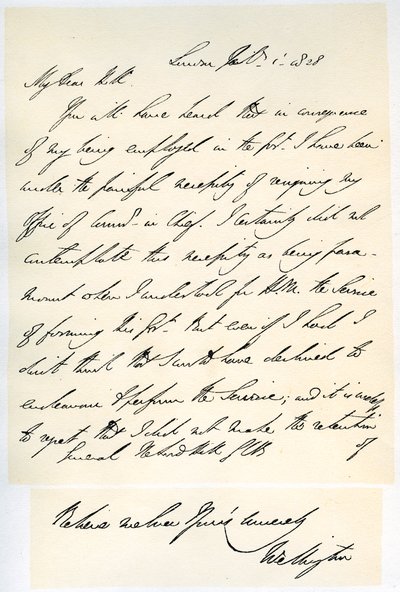 London Feb. 1. 1828
My Dear Hill.
You will have heard that in consequence
of my being employed in the Govt. I have been
under the painful necessity of resigning my
Office of Commr. in Chief. I certainly did not
contemplate this necessity as being para-
mount when I undertook for H.M. the Service
of forming his Govt. But even if I had I
don't think that I could have declined to
endeavour to perform the Service; and it is useless
to regret that I did not make the retention
General The Lord Hill GCB of
Believe me Ever Yours sincerely
Wellington